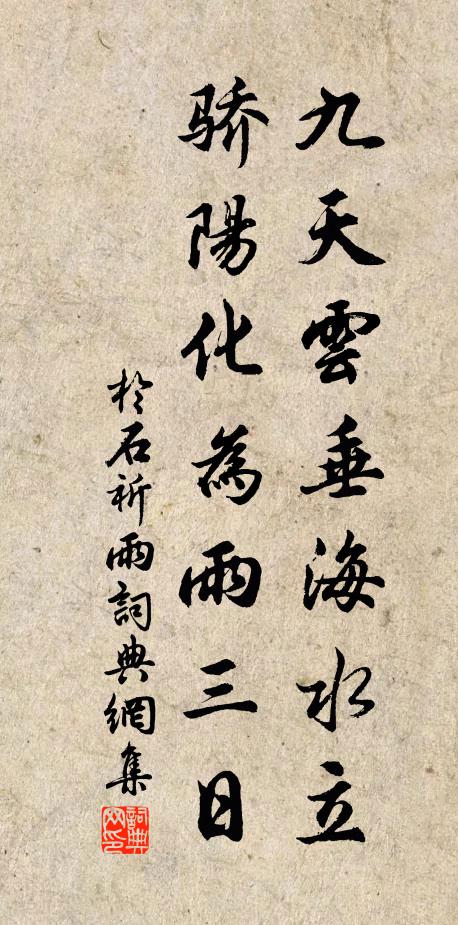 九天雲垂海水立
骄陽化為雨三日
於石祈雨詞典網集
詞典网印